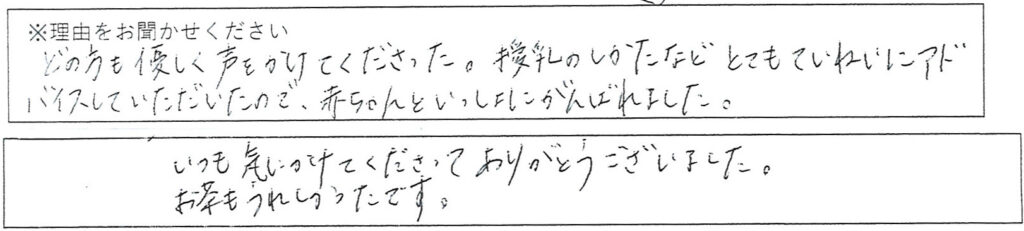 ※理由をお聞かせください
どの方も優しく声をかけてくださった。授乳のしかたなどとてもていねいにアド
バイスしていただいたので、赤ちゃんといっしょにがんばれました。
いつも気にかけてくださってありがとうございました。
お茶もうれしかったです。